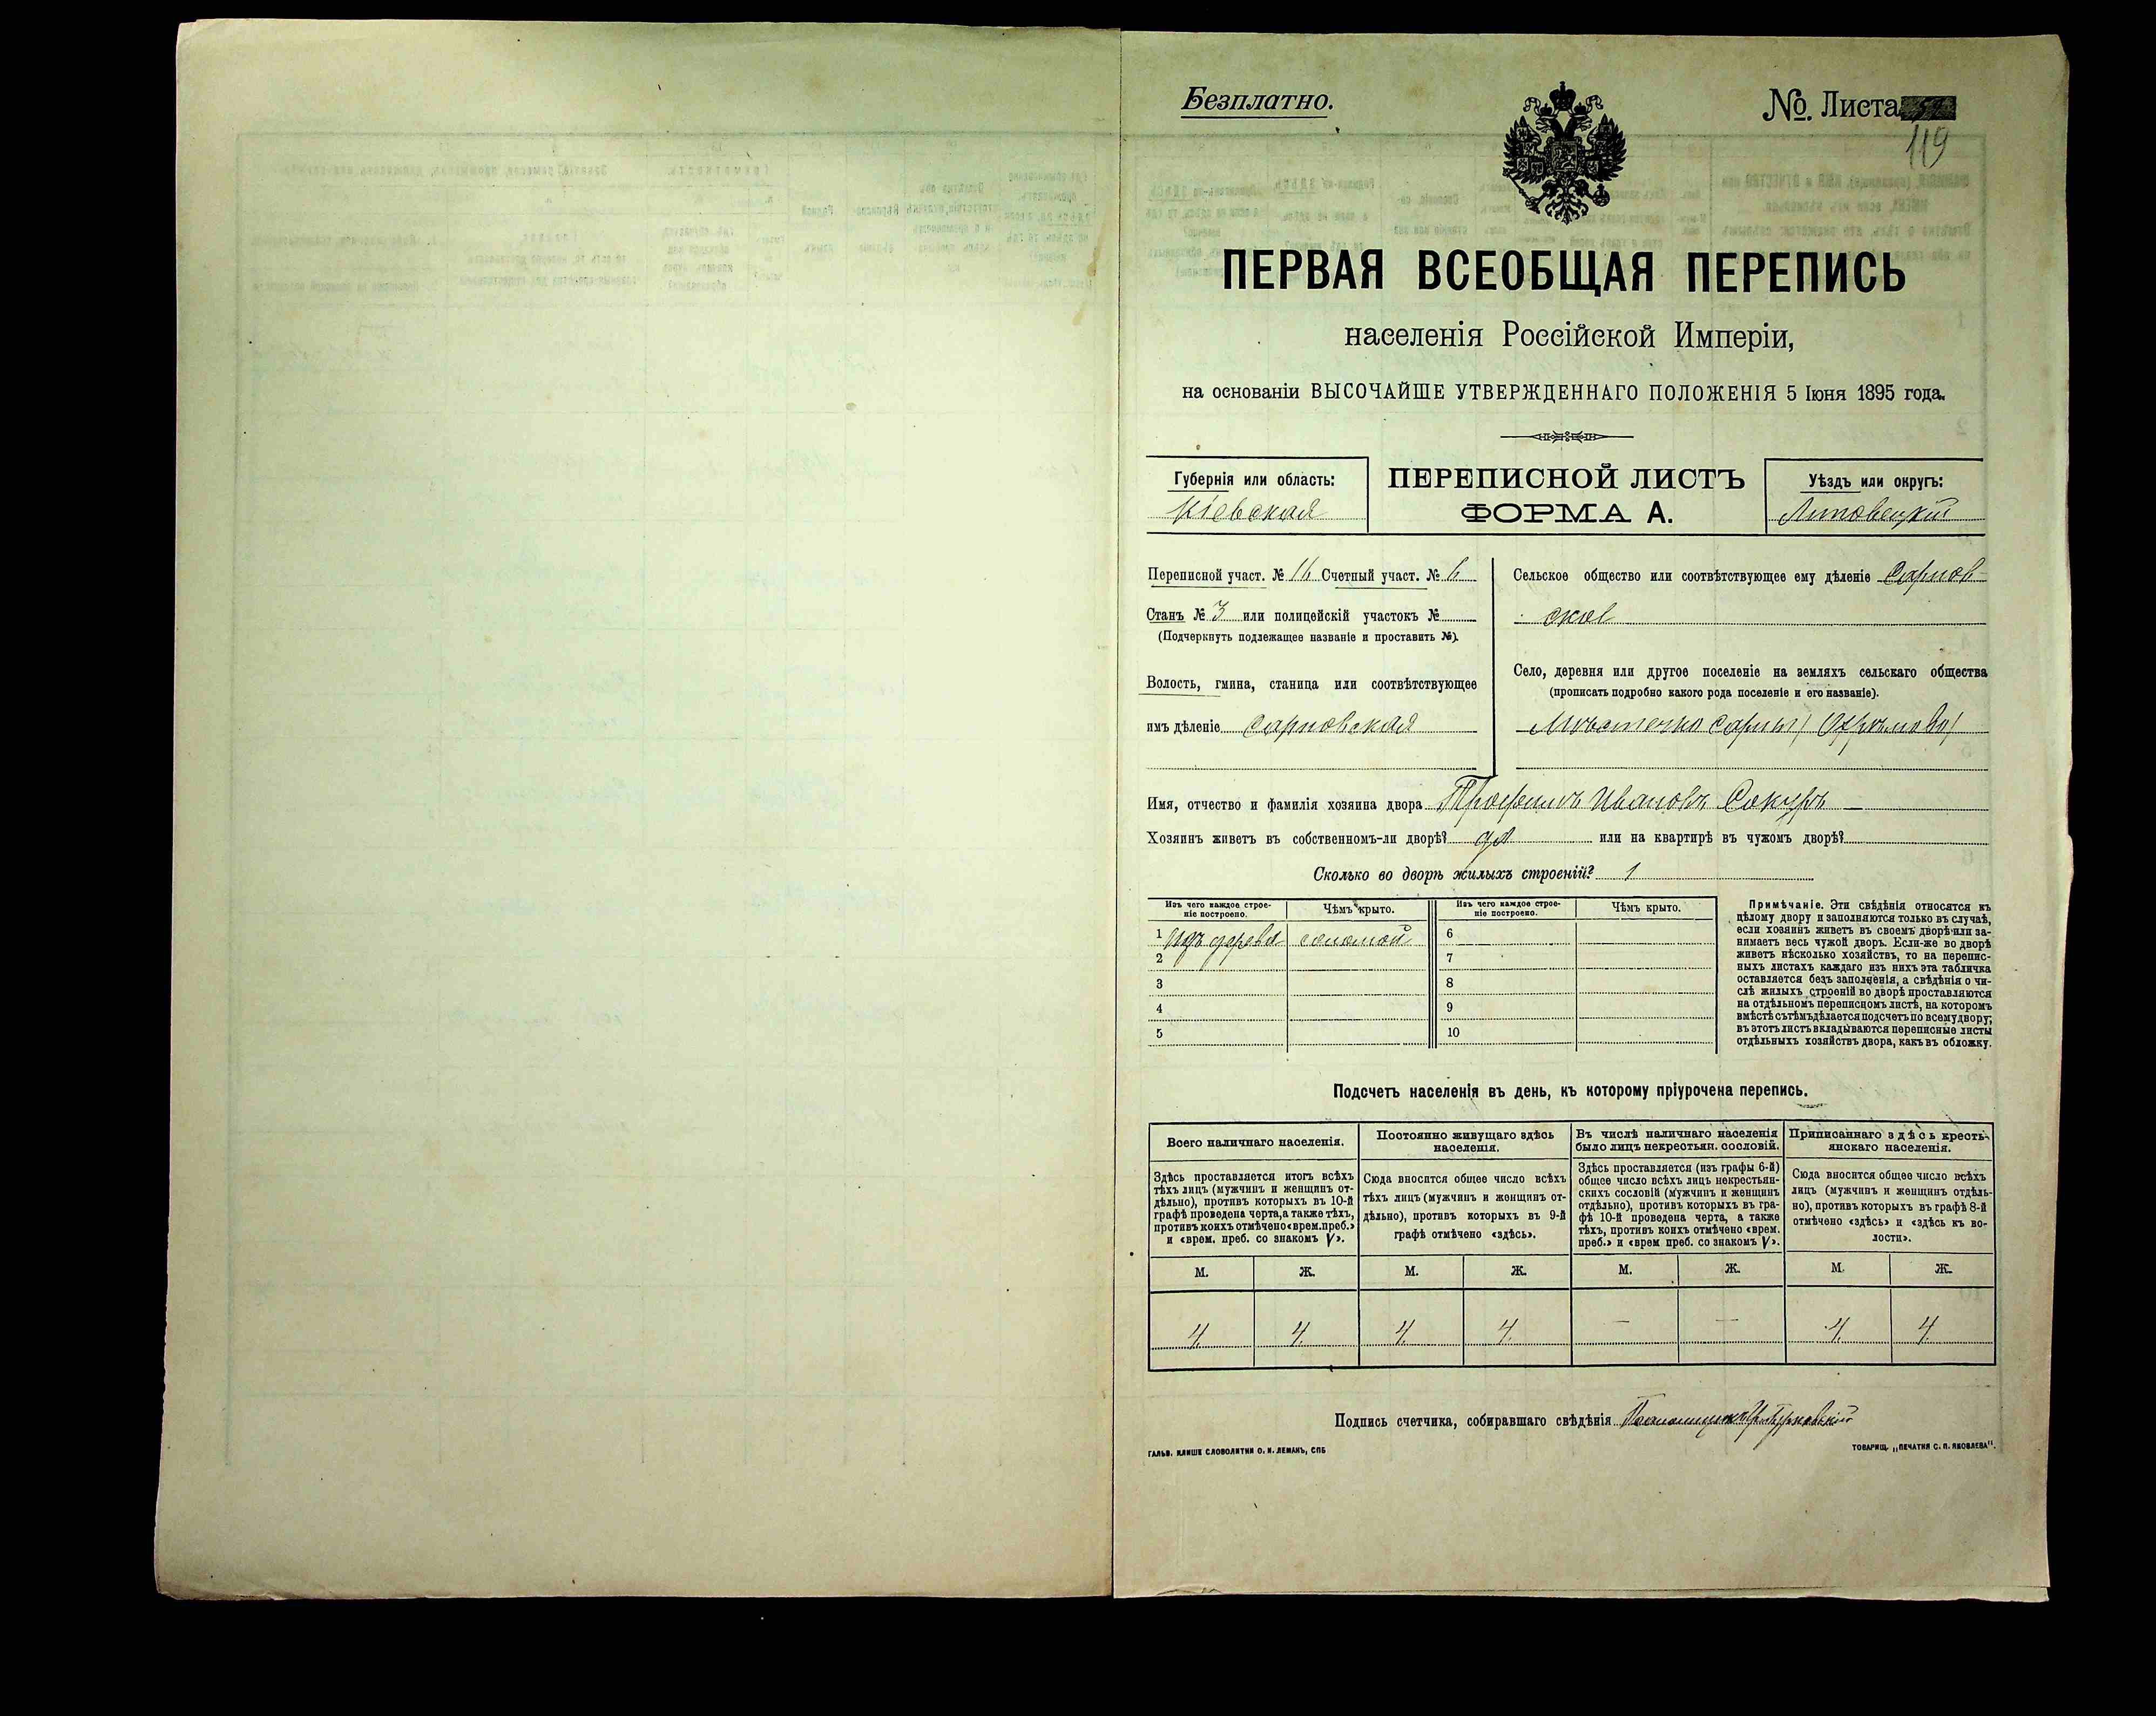 Безплатно.
№ Листа
119
ПЕРВАЯ ВСЕОБЩАЯ ПЕРЕПИСЬ
населенія Россійской Имперіи,
на основаніи ВЫСОЧАЙШЕ УТВЕРЖДЕННАГО ПОЛОЖЕНІЯ 5 Іюня 1895 года.
Губернія или область:
Кіевская
ПЕРЕПИСНОЙ ЛИСТЪ
ФОРМА А.
Уѣздъ или округъ:
Липовецкій
Переписной участ. № 16 Счетный участ. № 6
Станъ № 3 или полицейскій участокъ №
(Подчеркнуть подлежащее названіе и проставить №).
Волость, гмина, станица или соотвѣтствующее
имъ дѣленіе Сарновская
Сельское общество или соотвѣтствующее ему дѣленіе Сарнов-
ское
Село, деревня или другое поселеніе на земляхъ сельскаго общества
(прописать подробно какого рода поселеніе и его названіе).
Мѣстечко Сарны
Имя, отчество и фамилія хозяина двора Трофимъ Ивановъ Сокуръ
Хозяинъ живетъ въ собственномъ-ли дворѣ? да или на квартирѣ въ чужомъ дворѣ?
Сколько во дворѣ жилыхъ строеній? 1
Изъ чего каждое строе-
ніе построено.
Чѣмъ крыто.
Изъ чего каждое строе-
ніе построено.
Чѣмъ крыто.
1 изъ дерева соломой 6
2 7
3 8
4 9
5 10
Примѣчаніе. Эти свѣдѣнія относятся къ
цѣлому двору и заполняются только въ случаѣ,
если хозяинъ живетъ въ своемъ дворѣ или за-
нимаетъ весь чужой дворъ. Если-же во дворѣ
живетъ нѣсколько хозяйствъ, то на перепис-
ныхъ листахъ каждаго изъ нихъ эта табличка
оставляется безъ заполненія, а свѣдѣнія о чи-
слѣ жилыхъ строеній во дворѣ проставляются
на отдѣльномъ переписномъ листѣ, на которомъ
вмѣстѣ съ тѣмъ дѣлается подсчетъ по всему двору;
въ этотъ листъ вкладываются переписные листы
отдѣльныхъ хозяйствъ двора, какъ въ обложку.
Подсчетъ населенія въ день, къ которому пріурочена перепись.
Всего наличнаго населенія.
Здѣсь проставляется итогъ всѣхъ
тѣхъ лицъ (мужчинъ и женщинъ от-
дѣльно), противъ которыхъ въ 10-й
графѣ проведена черта, а также тѣхъ,
противъ коихъ отмѣчено «врем. преб.»
и «врем. преб. со знакомъ V».
Постоянно живущаго здѣсь
населенія.
Сюда вносится общее число всѣхъ
тѣхъ лицъ (мужчинъ и женщинъ от-
дѣльно), противъ которыхъ въ 9-й
графѣ отмѣчено «здѣсь».
Въ числѣ наличнаго населенія
было лицъ некрестьян. сословій.
Здѣсь проставляется (изъ графы 6-й)
общее число всѣхъ лицъ некрестьян-
скихъ сословій (мужчинъ и женщинъ
отдѣльно), противъ которыхъ въ гра-
фѣ 10-й проведена черта, а также
тѣхъ, противъ коихъ отмѣчено «врем.
преб.» и «врем. преб. со знакомъ V».
Приписаннаго здѣсь кресть-
янскаго населенія.
Сюда вносится общее число всѣхъ
лицъ (мужчинъ и женщинъ отдѣль-
но), противъ которыхъ въ графѣ 8-й
отмѣчено «здѣсь» и «здѣсь къ во-
лости».
М. Ж. М. Ж. М. Ж. М. Ж.
4. 4. 4. 4. — — 4. 4.
Подпись счетчика, собиравшаго свѣдѣнія
ГАЛЬВ. КЛИШЕ СЛОВОЛИТНИ О. И. ЛЕМАНЪ, СПБ
ТОВАРИЩ. „ПЕЧАТНЯ С. П. ЯКОВЛЕВА".